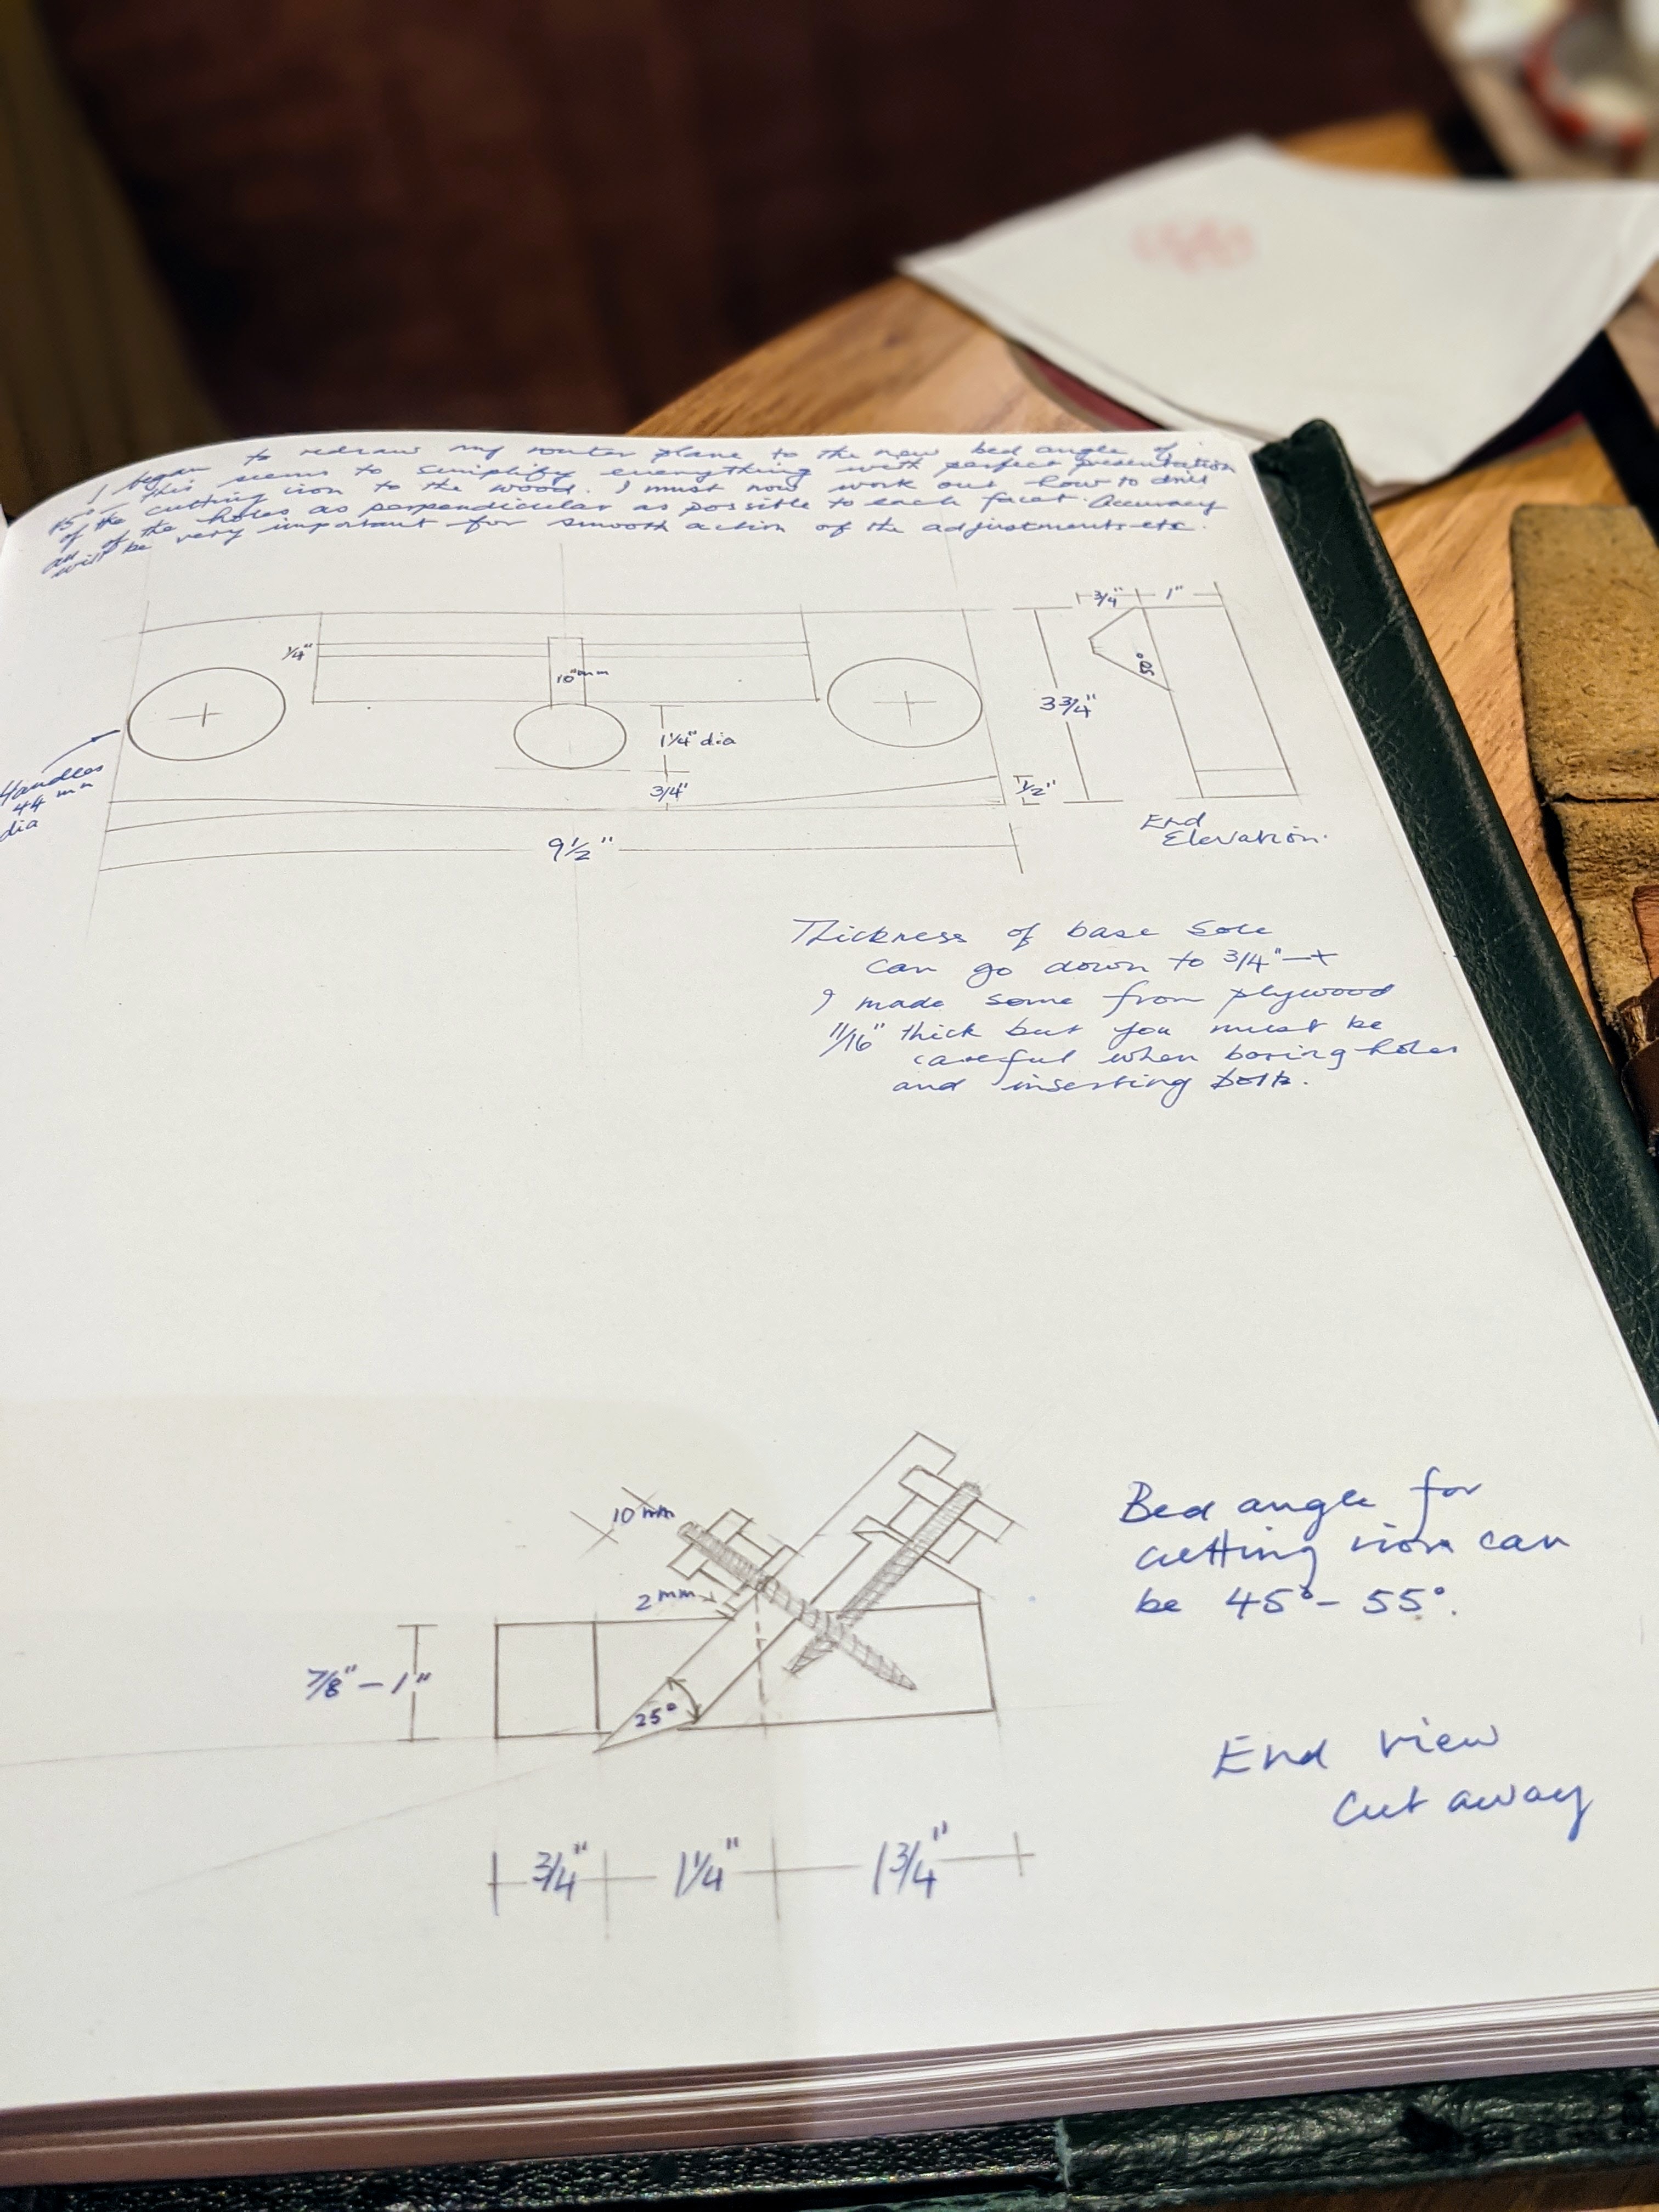 I began to redraw my router plane to the new bed angle of
45° This seems to simplify everything with perfect presentation
of the cutting iron to the wood. I must now work out how to drill
all of the holes as perpendicular as possible to each facet. Accuracy
will be very important for smooth action of the adjustments etc.
3/4" 1"
1/4"
10mm
3 3/4"
1 1/4" dia
3/4"
1/2"
Handles
44 mm
dia
9 1/2"
End
Elevation.
Thickness of base sole
can go down to 3/4" —
I made some from plywood
11/16" thick but you must be
careful when boring holes
and inserting bolts.
10 mm
2 mm
7/8" — 1"
25°
Bed angle for
cutting iron can
be 45° – 55°.
End view
cut away
3/4" 1 1/4" 1 3/4"